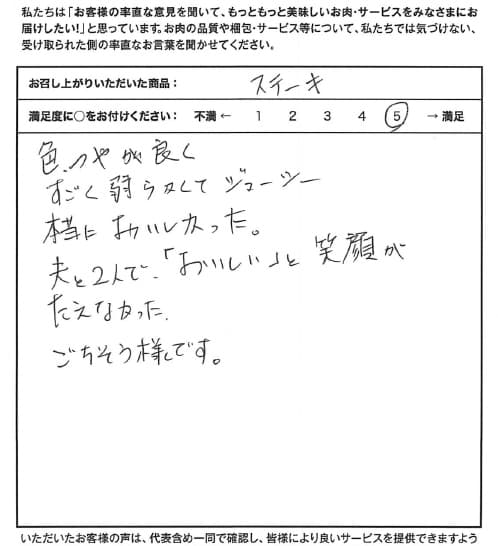 私たちは「お客様の率直な意見を聞いて、もっともっと美味しいお肉・サービスをみなさまにお
届けしたい！」と思っています。お肉の品質や梱包・サービス等について、私たちでは気づけない、
受け取られた側の率直なお言葉を聞かせてください。
お召し上がりいただいた商品： ステーキ
満足度に○をお付けください： 不満 ← 1 2 3 4 5 → 満足
色、つやが良く
すごく 柔らかくて ジューシー
本当に おいしかった。
夫と2人で、「おいしい」と 笑顔が
たえなかった.
ごちそう様です。
いただいたお客様の声は、代表含め一同で確認し、皆様により良いサービスを提供できますよう